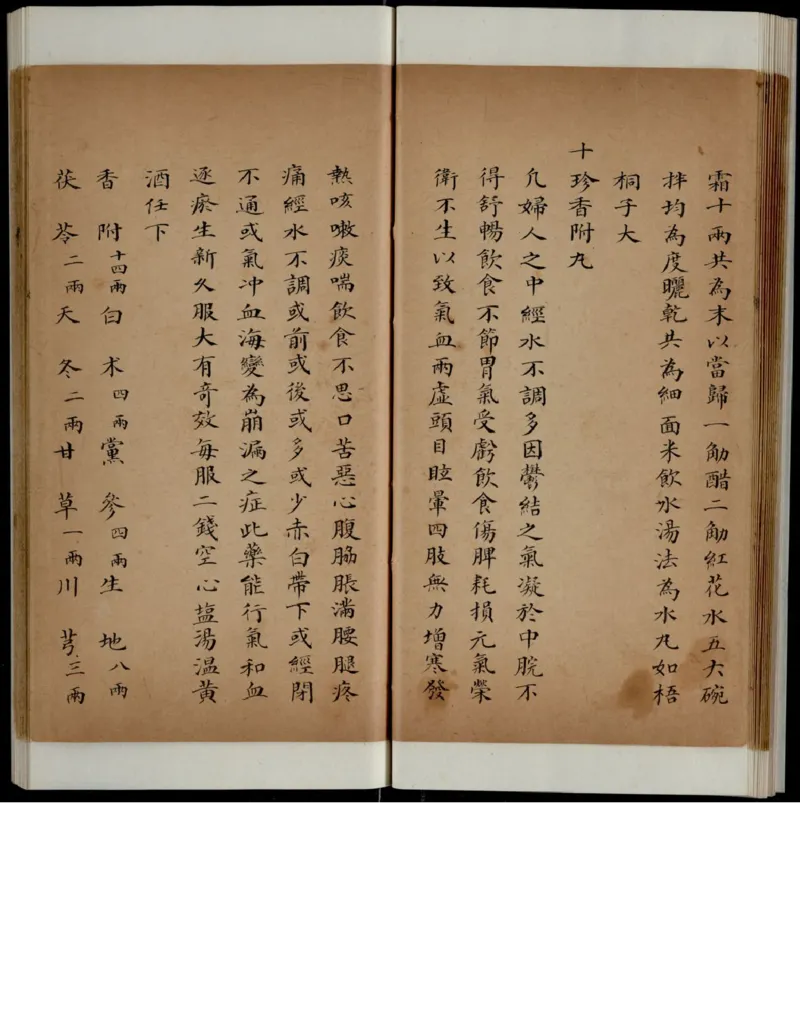 霜十兩共為末以當歸一觔醋二觔紅花水五大碗
拌均為度曬乾共為細面米飲水湯法為水丸如梧
桐子大
十珍香附丸
凢婦人之中經水不調多因鬱結之氣凝於中脘不
得舒暢飲食不節胃氣受虧飲食傷脾耗損元氣榮
衛不生以致氣血兩虛頭目眩暈四肢無力增寒發
熱咳嗽痰喘飲食不思口苦惡心腹脇脹滿腰腿疼
痛經水不調或前或後或多或少赤白帶下或經閉
不通或氣冲血海變為崩漏之症此藥能行氣和血
逐瘀生新久服大有奇效每服二錢空心塩湯温黄
酒任下
香附十四兩白术四兩黨參四兩生地八兩
茯苓二兩天冬二兩甘草一兩川芎三兩